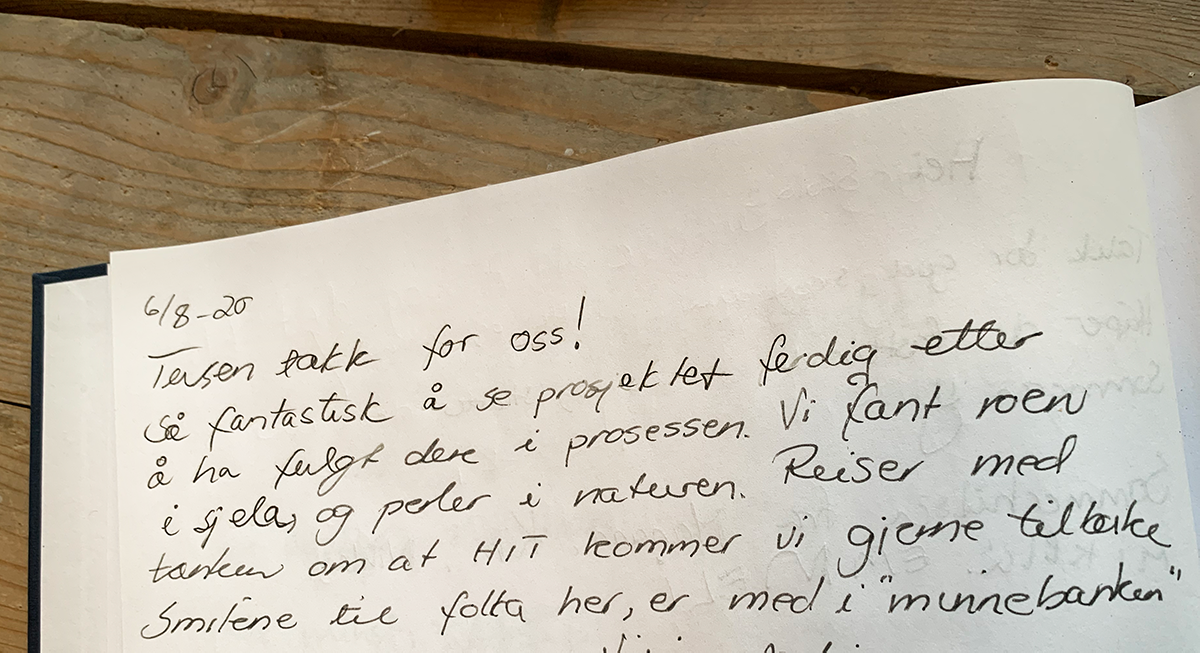 6/8-20
Tusen takk for oss!
Så fantastisk å se prosjektet ferdig etter
å ha fulgt dere i prosessen. Vi fant roen
i sjela, og perler i naturen. Reiser med
tanken om at HIT kommer vi gjerne tilbake
Smilene til folka her, er med i "minnebanken"
Hei
Takk for